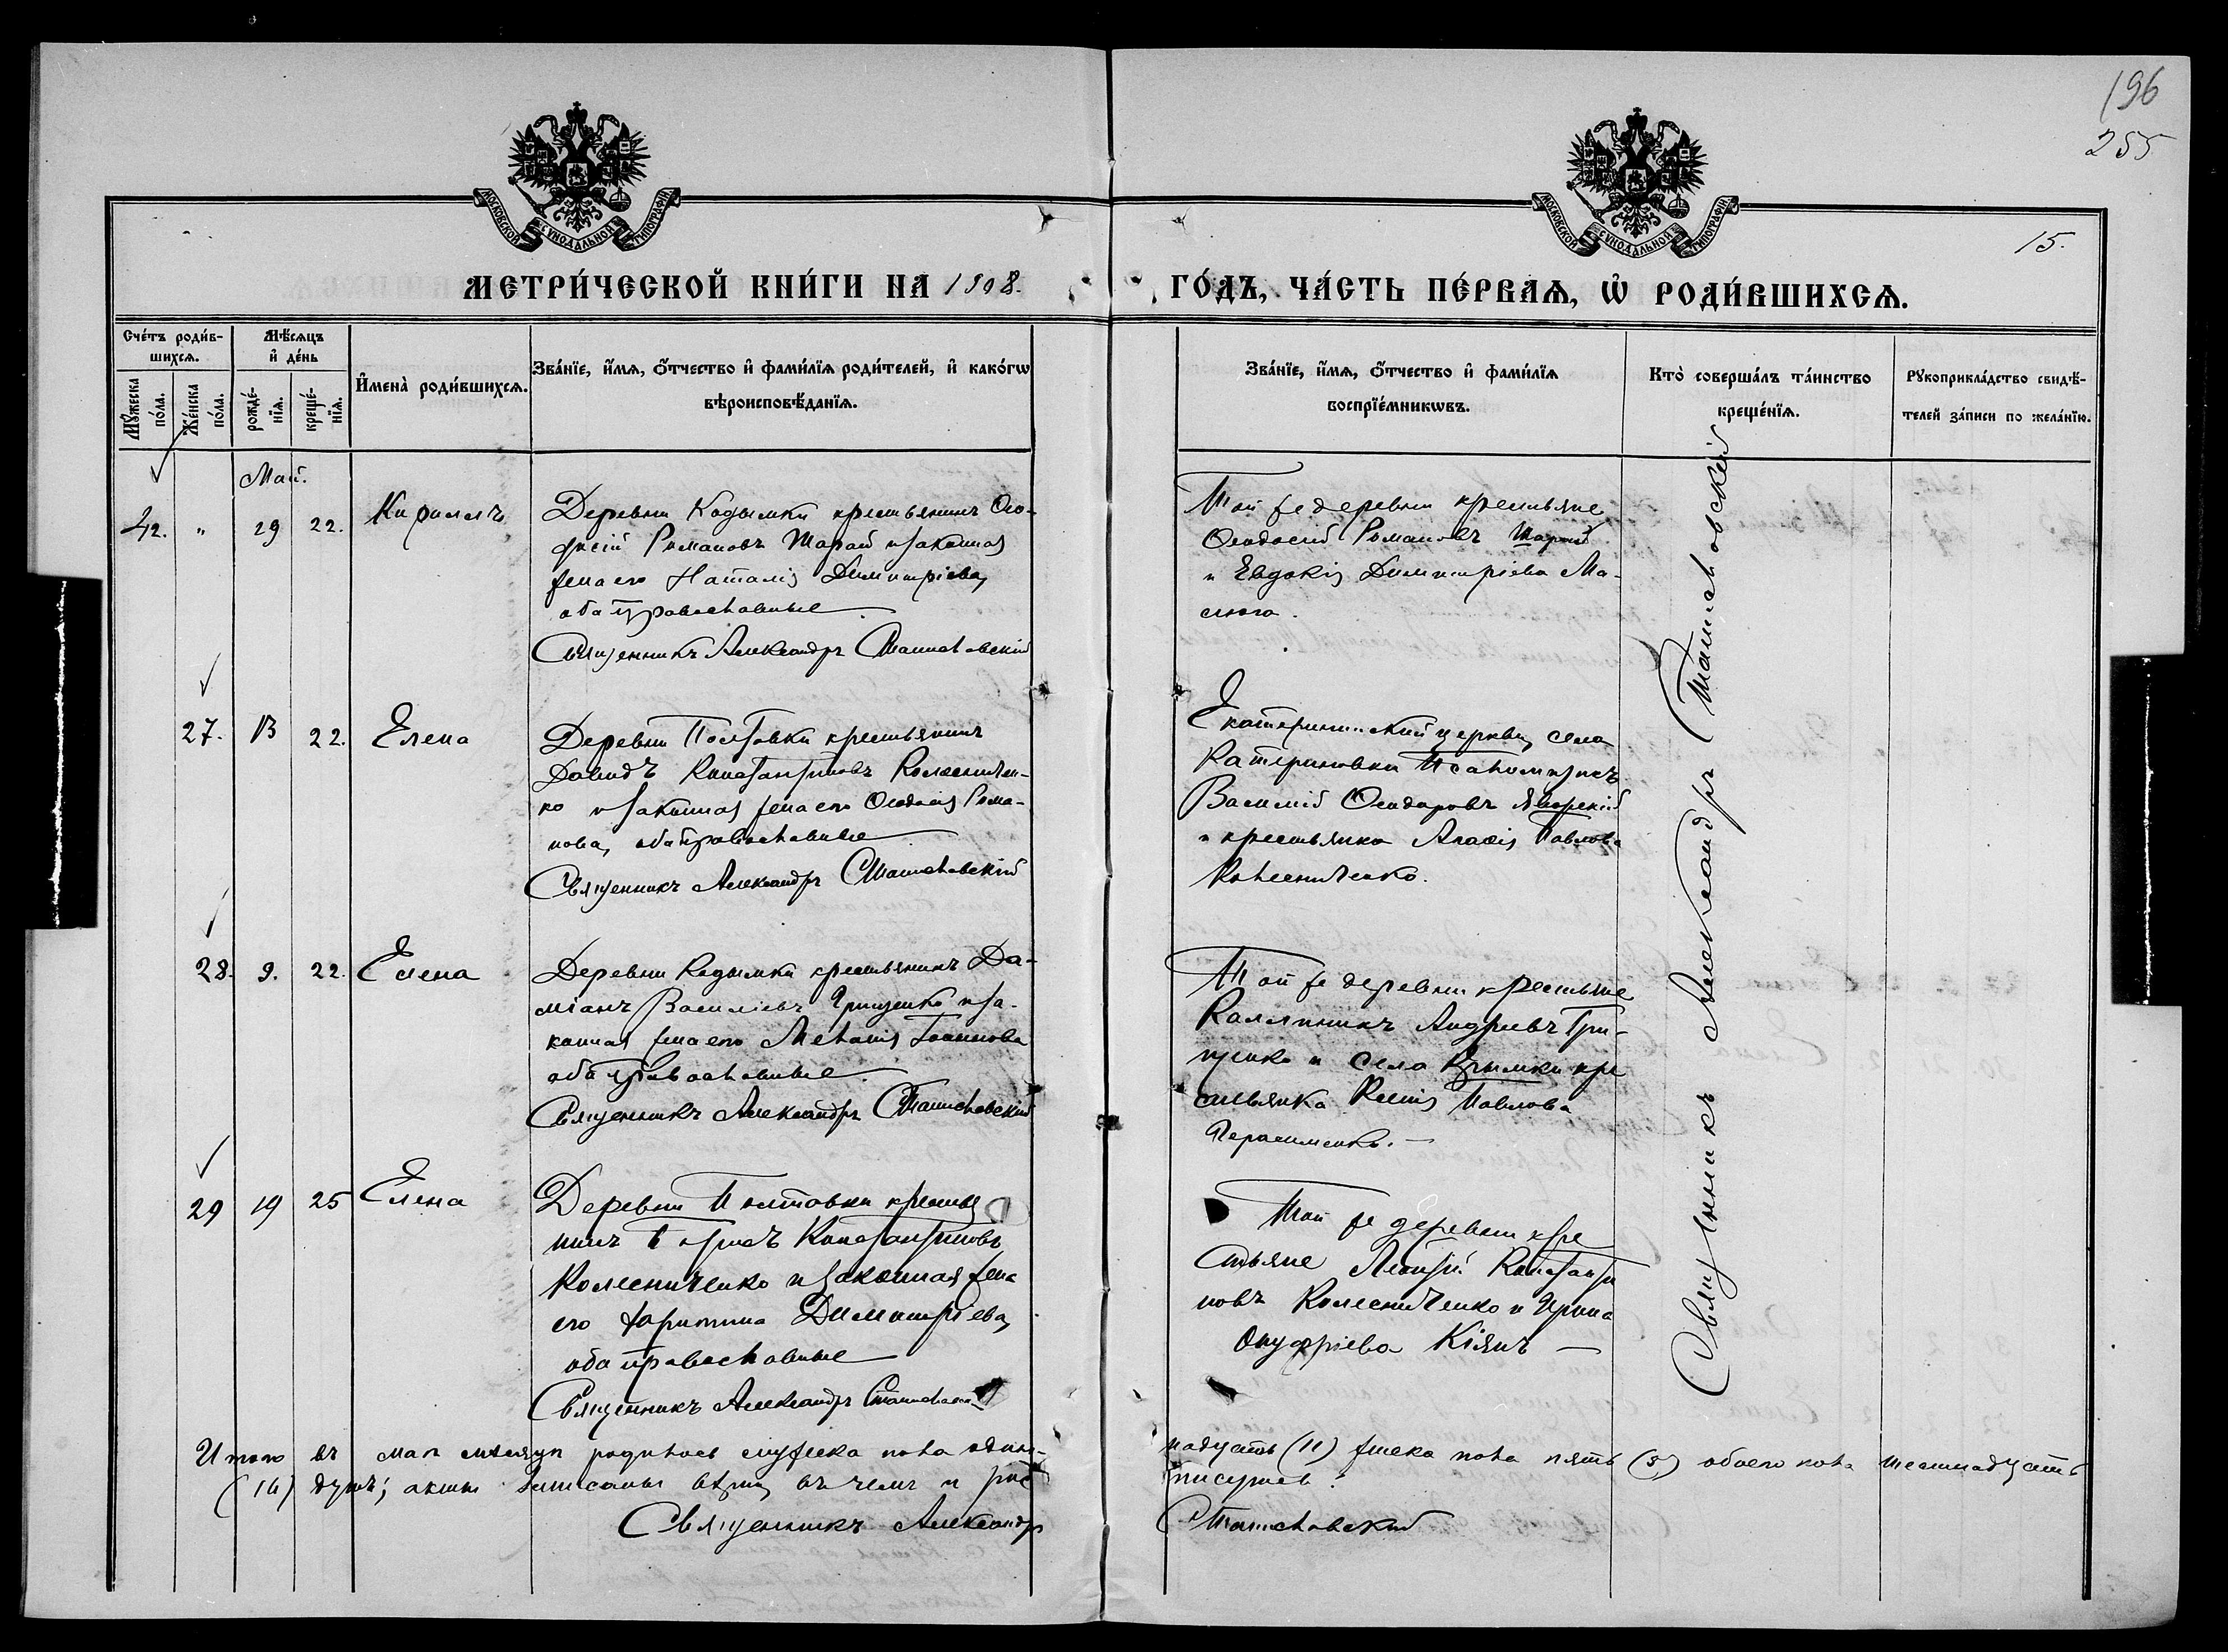 196
255
15.
МОСКОВСКОЙ СѴНОДАЛЬНОЙ ТИПОГРАФІИ
МОСКОВСКОЙ СѴНОДАЛЬНОЙ ТИПОГРАФІИ
МЕТРИ́ЧЕСКОЙ КНИ́ГИ НА 1908.
ГО́ДЪ, ЧА́СТЬ ПЕ́РВАѦ, Ѡ҆ РОДИ́ВШИХСѦ.
Сче́тъ роди́в-
шихсѧ.
Мꙋ́жеска
по́ла.
Же́нска
по́ла.
Мѣ́сѧцъ
и҆ де́нь
рожде́-
нїѧ.
креще́-
нїѧ.
И҆мена̀ роди́вшихсѧ.
Зва́нїе, и҆́мѧ, ѻ҆́тчество и҆ фами́лїѧ роди́телей, и҆ како́гѡ
вѣроисповѣ́данїѧ.
Зва́нїе, и҆́мѧ, ѻ҆́тчество и҆ фами́лїѧ
воспрїе́мникѡвъ.
Кто̀ соверша́лъ та́инство
креще́нїѧ.
Рꙋкоприкла́дство свидѣ́-
телей за́писи по жела́нїю.
Май.
42. " 29 22. Кириллъ
Деревни Кодымки крестьянинъ Ѳео-
досій Романовъ Шарай и законная
жена его Наталія Димитріева,
оба православные
Священникъ Александръ Сташевскій
Той же деревни крестьяне
Ѳеодосій Романовъ Шарай
и Евдокія Димитріева Ма-
слюга.
27. 13 22. Елена
Деревни Полтовки крестьянинъ
Давидъ Константиновъ Колесничен-
ко и законная жена его Ѳеодосія Рома-
нова, оба православные
Священникъ Александръ Сташевскій
Екатерининской церкви, села
Катериновки Псаломщикъ
Василій Ѳеодоровъ Яворскій
и крестьянка Павлова
Колесниченко.
28. 9. 22. Елена
Деревни Кодымки крестьянинъ Да-
міанъ Василіевъ Грищенко и за-
конная жена его Меланія Іоаннова
оба православные
Священникъ Александръ Сташевскій
Той же деревни крестьяне
Каллиникъ Андреевъ Гри-
щенко и села кре
стьянка Ксенія Павлова
Герасименко.
29 19 25 Елена
Деревни Полтовки крестья
нинъ Константиновъ
Колесниченко и законная жена
его Харитина Димитріева,
оба православные
Священникъ Александръ Сташевскій
Той же деревни кре
стьяне Леонтій Константи
новъ Колесниченко и Ирина
Онуфріева Кіянъ
Священникъ Александръ Сташевскій
Итого въ маѣ мѣсяцѣ родилось мужеска пола один-
надцать (11) женска пола пять (5) обоего пола шестнадцать
(16) душъ; акты записаны вѣрно, въ чемъ и рос
писуемся
Священникъ Александръ
Сташевскій